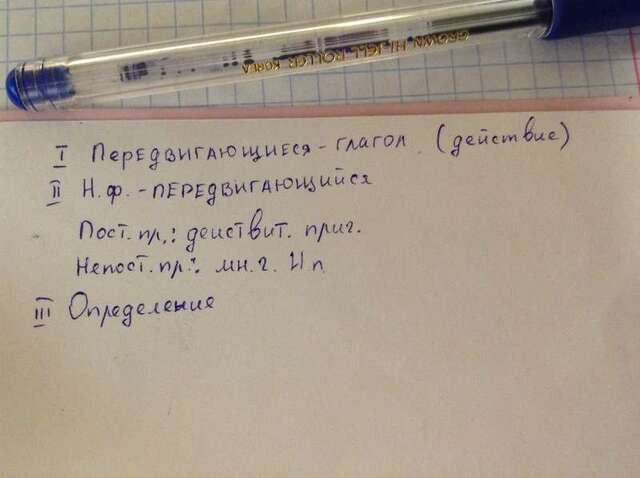 CROWN HI-JELL ROLLER KOREA
I Передвигающиеся - глагол (действие)
II Н.ф. - передвигающийся
Пост. пр.: действит. прич.
Непост. пр.: мн.ч. И п
III Определение